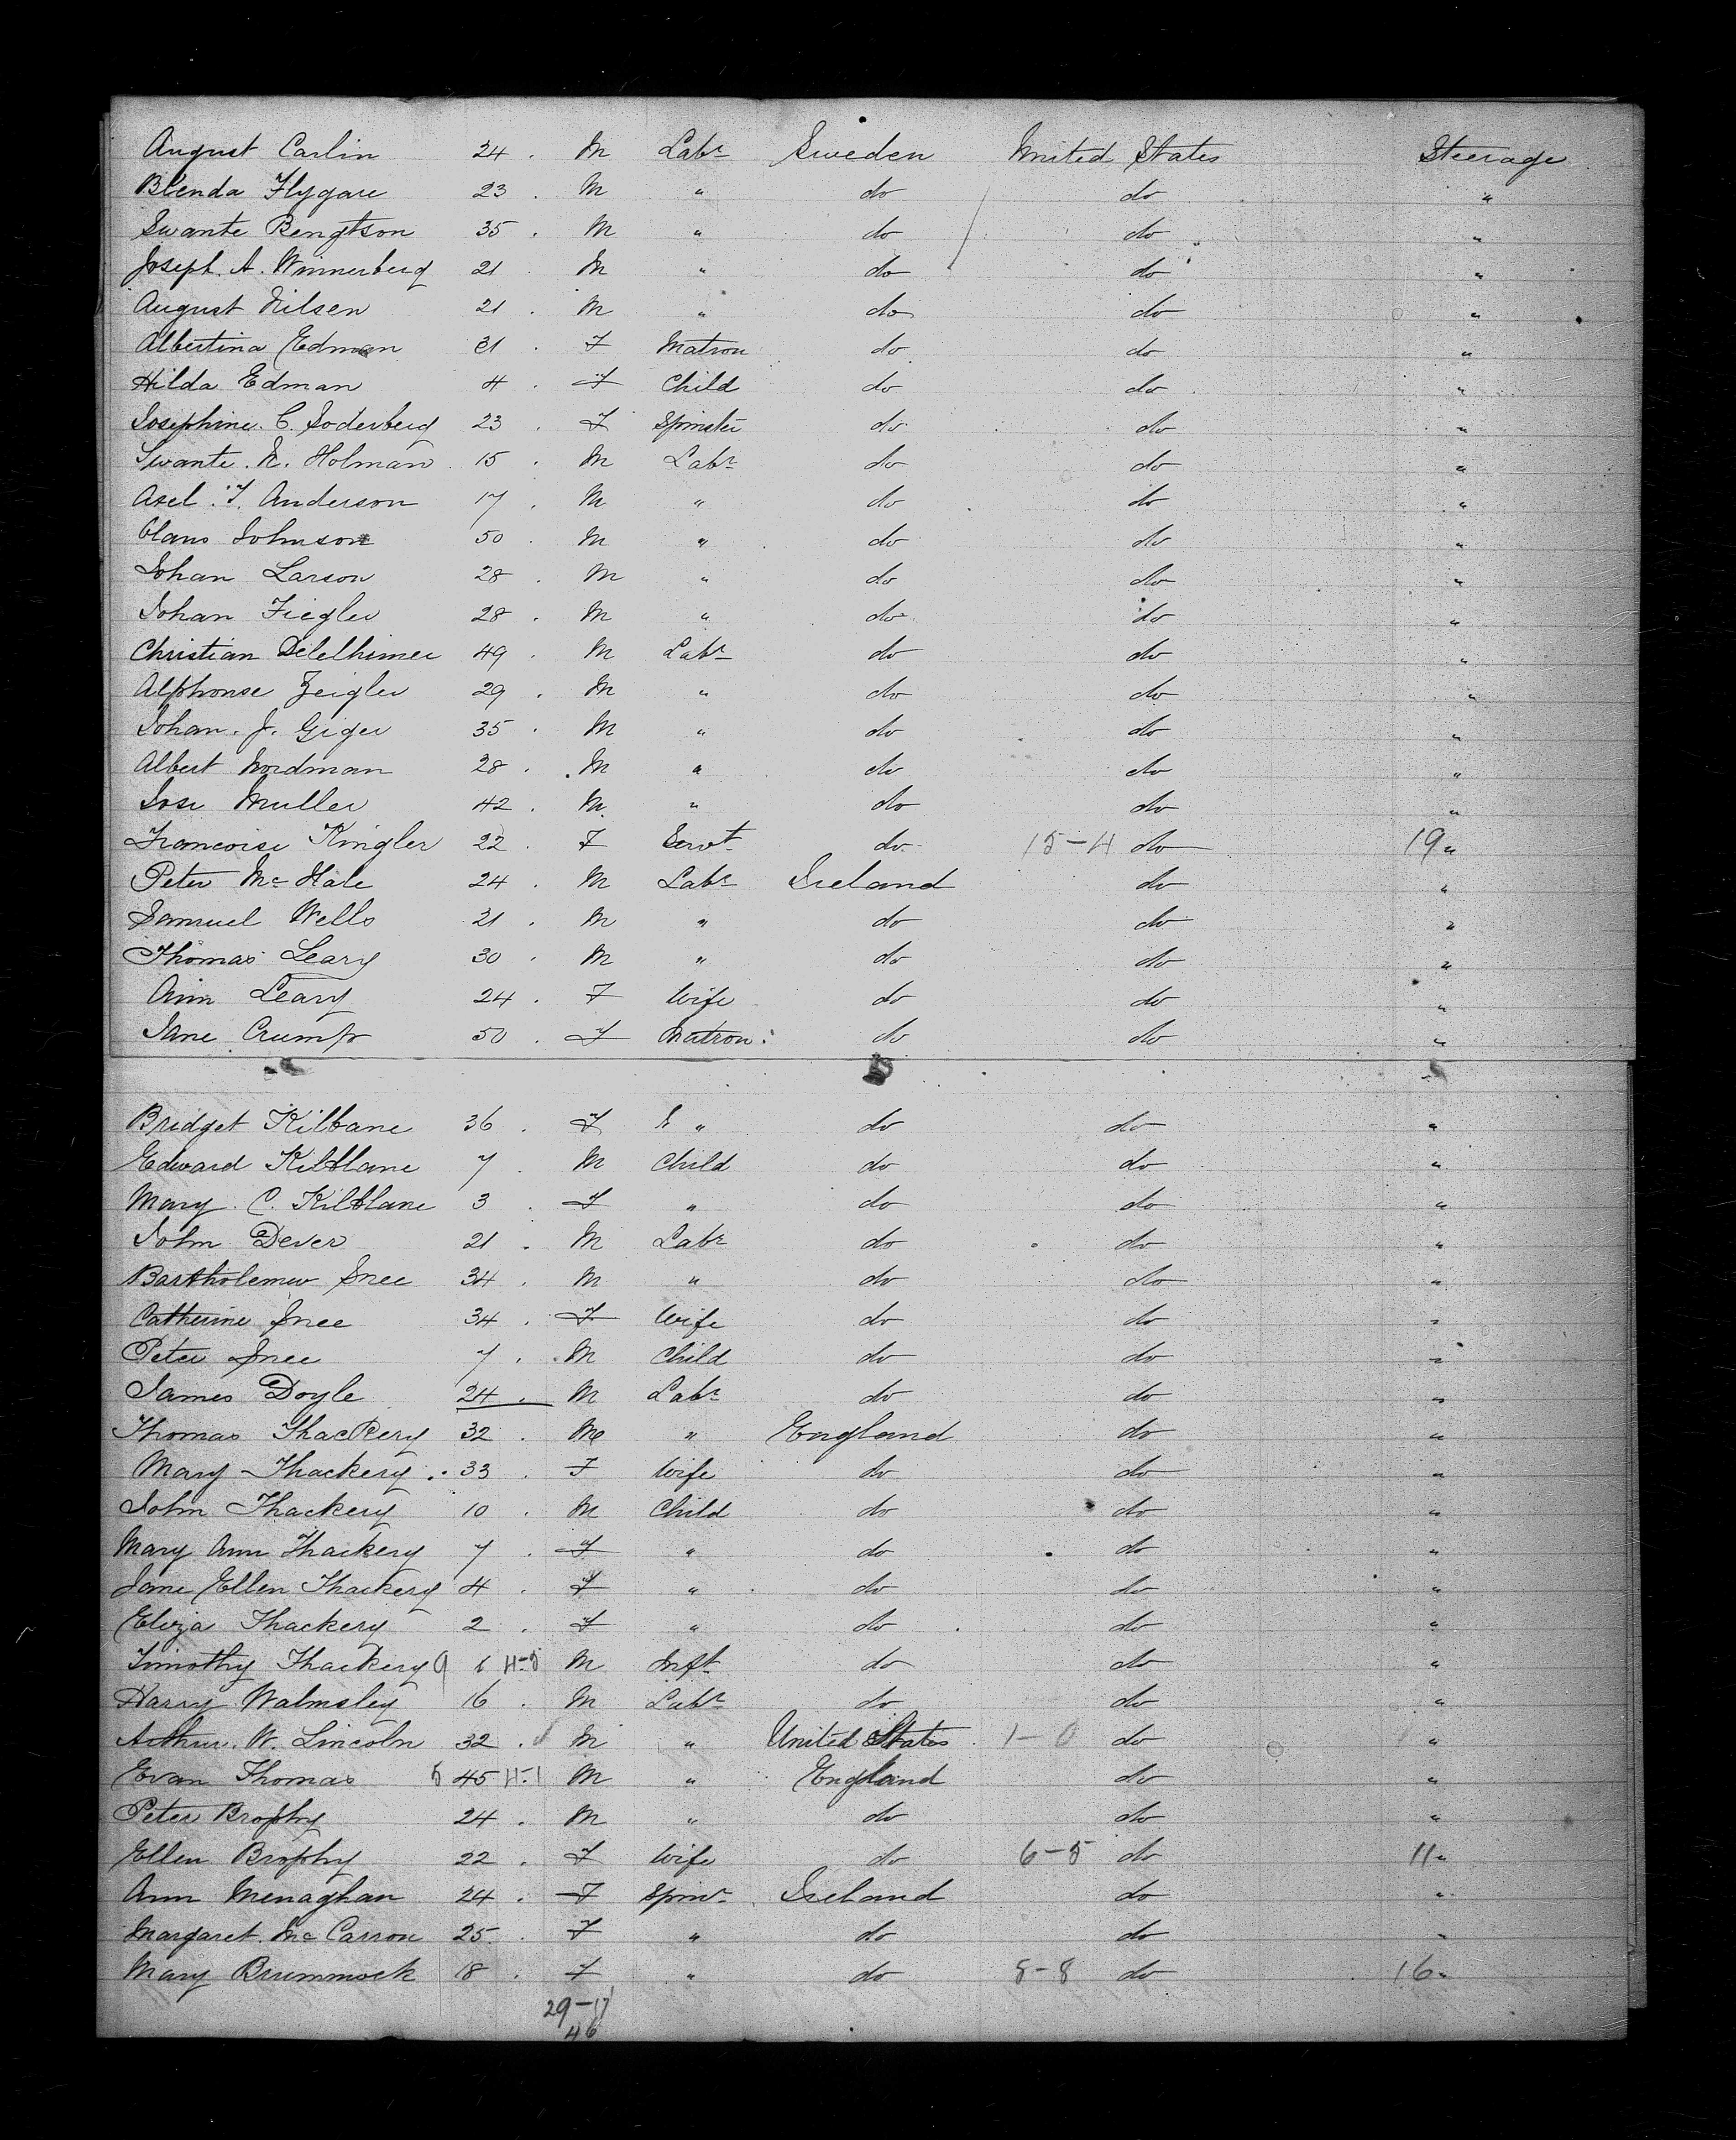 August Carlin 24 . M Labr Sweden United States Steerage
Blenda Flygare 23 . M " do do "
Swante Bengtson 35 . M " do do "
Joseph. A. Winnerberg 21 . M " do do "
August Nilsen 21 . M " do do "
Albertina Edman 31 . F Matron do do "
Hilda Edman 4 . F Child do do "
Josephine. C. Soderberg 23 . F Spinster do do "
Swante. N. Holman 15 . M Labr do do "
Axel. F. Anderson 17 . M " do do "
Claus Johnson 50 . M " do do "
Johan Larson 28 . M " do do "
Johan Fiegler 28 . M " do do "
Christian 49 . M Labr do do "
Alphonse Zeigler 29 . M " do do "
Johan. J. Giger 35 . M " do do "
Albert Nordman 28 . M " do do "
Jose Muller 42 . M " do do "
Francoise Kingler 22 . F Servt do 15-4 do 19 "
Peter Mc Hale 24 . M Labr Ireland do "
Samuel Wells 21 . M " do do "
Thomas Leary 30 . M " do do "
Ann Leary 24 . F Wife do do "
Jane Crump 50 . F Matron do do "
Bridget Kilbane 36 . F " do do "
Edward Kilblane 7 . M Child do do "
Mary. C. Kilblane 3 . F " do do "
John Dever 21 . M Labr do do "
Bartholemew Snee 34 . M " do do "
Catherine Snee 34 . F Wife do do "
Peter Snee 7 . M Child do do "
James Doyle 24 . M Labr do do "
Thomas Thackery 32 . M " England do "
Mary Thackery . 33 . F Wife do do "
John Thackery 10 . M Child do do "
Mary Ann Thackery 7 . F " do do "
Jane Ellen Thackery 4 . F " do do "
Eliza Thackery 2 . F " do do "
Timothy Thackery 9 4-5 M Inft do do "
Harry Walmsley 16 . M Labr do do "
Arthur. W. Lincoln 32 . M " United States 1-0 do "
Evan Thomas 5 45 4-1 M " England do "
Peter Brophy 24 . M " do do "
Ellen Brophy 22 . F Wife do 6-5 do 11 "
Ann Menaghan 24 . F Spinr Ireland do "
Margaret. Mc Carron 25 . F " do do "
Mary Brummock 18 . F " do 8-8 do 16 "
29-17
46